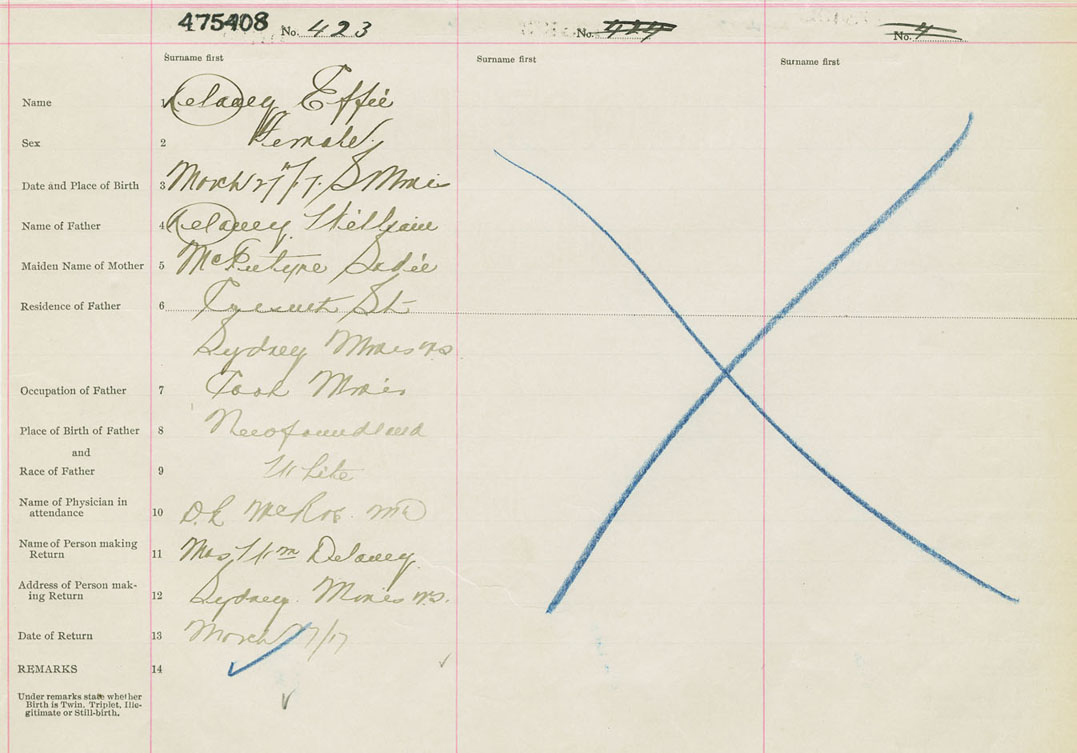 475408 No. 423
No. 424
No. 4
Surname first
Surname first
Surname first
Name 1 Delaney Effie
Sex 2 Female
Date and Place of Birth 3 March 27th/17. S Mines
Name of Father 4 Delaney William
Maiden Name of Mother 5 McIntyre Sadie
Residence of Father 6 St
Sydney Mines NS
Occupation of Father 7 Mines
Place of Birth of Father 8 Newfoundland
and
Race of Father 9 White
Name of Physician in
attendance 10 McRae MD
Name of Person making
Return 11 Mrs. Wm Delaney
Address of Person mak-
ing Return 12 Sydney Mines NS.
Date of Return 13 March /17
REMARKS 14
Under remarks state whether
Birth is Twin, Triplet, Ille-
gitimate or Still-birth.